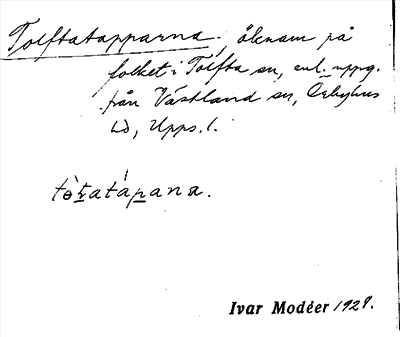 Tolftatapparna. öknam på
folket i Tolfta sn, enl. uppg.
från Västland sn, Örbyhus
hd, Upps. l.
tòt̲atáp̲ana.
Ivar Modéer 1929.